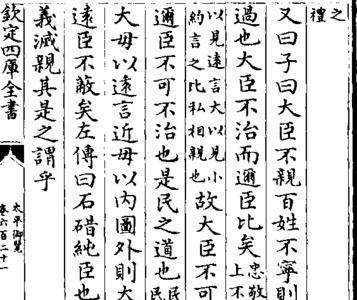 之
禮
又曰子曰大臣不親百姓不寧則
過也大臣不治而邇臣比矣忠敬
上不
以見遠言大以見小
約言之比私相親也故大臣不可
邇臣不可不治也是民之道也民
民
大毋以遠言近毋以内圖外則大
遠臣不蔽矣左傳曰石碏純臣也
義滅親其是之謂乎
欽定四庫全書
太平御覽
卷六百二十一